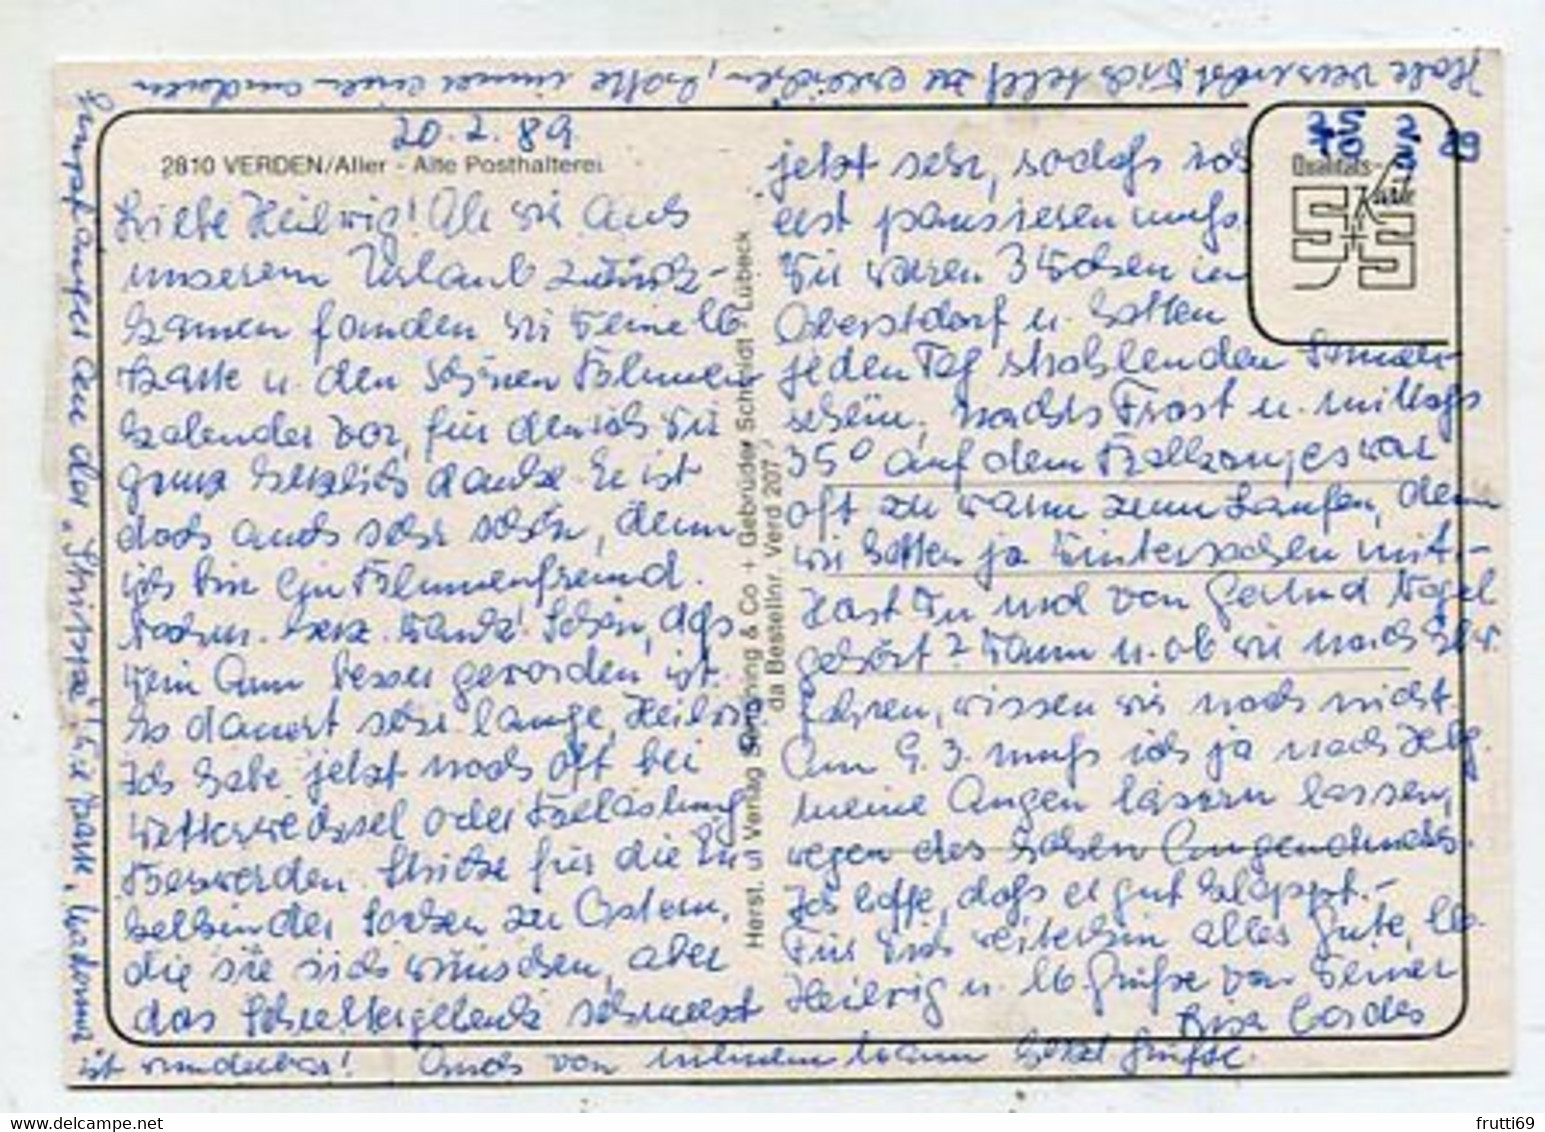 20.2.89
2810 VERDEN/Aller - Alte Posthalterei
Liebe Heilwig! Als wir aus
unserem Urlaub zurück-
kamen fanden wir Deine lb
Karte u. den schönen Blumen
kalender vor, für den ich Dir
ganz herzlich danke. Er ist
doch auch sehr schön, denn
ich bin ein Blumenfreund.
Nochm. herz. Dank! Schön, daß
Dein Arm besser geworden ist.
Es dauert sehr lange, Heilwig
Ich habe jetzt noch oft bei
Wetterwechsel oder Belastung
Beswerden. Stricke für die En
kelkinder Socken zu Ostern,
die sie sich wünschen, aber
das Schultergelenk schmerzt
jetzt sehr, sodaß ich
erst pausieren muß.
Wir waren 3 Wochen in
Oberstdorf u. hatten
jeden Tag strahlenden Sonnen
schein, nachts Frost u. mittags
35° auf dem Balkon, es war
oft zu warm zum Laufen, denn
wir hatten ja Wintersachen mit.-
Hast Du mal von Gerlind Nagel
gehört? Wann u. ob wir nach
fahren, wissen wir noch nicht
Am 9.3. muß ich ja nach Hbg.
meine Augen lasern lassen,
wegen des hohen Augendrucks.
Ich hoffe, daß er gut klappt.-
Für Dich weiterhin alles Gute, lb.
Heilwig u. lb Grüße von Deiner
Cordes
Auch von meinem Mann herzl Grüße.
Habe versucht Dich telef zu erreichen, hatte immer einen anderen
an der "Strippe".
ist wunderbar!
Herst. u. Verlag Schöning & Co + Gebrüder Schmidt, Lübeck
da Bestellnr. Verd 207
25 2 89
Qualitäts-
Karte
S+S
frutti69